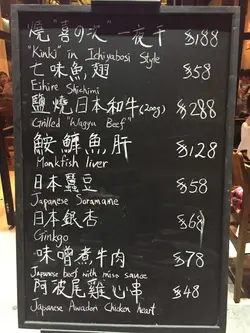 燒"喜の次"一夜干 $188
"Kinki" in Ichiyabosi Style
七味魚翅 $58
Eihire Shichimi
鹽燒日本和牛(200g) $288
Grilled "Wagyu Beef"
鮟鱇魚肝 $128
Monkfish liver
日本蠶豆 $58
Japanese Soramame
日本銀杏 $68
Ginkgo
味噌煮牛肉 $78
Japanese beef with miso sauce
阿波尾雞心串 $48
Japanese Awaodori Chicken heart